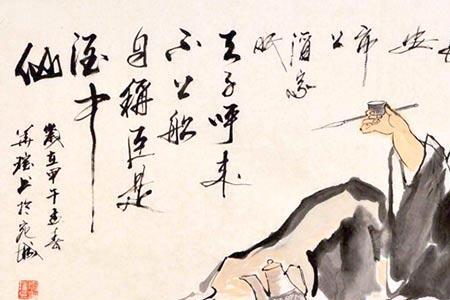 安
市上
酒家
眠
天子呼来
不上船
自稱臣是
酒中
仙
歲在甲午孟春
书於宛城